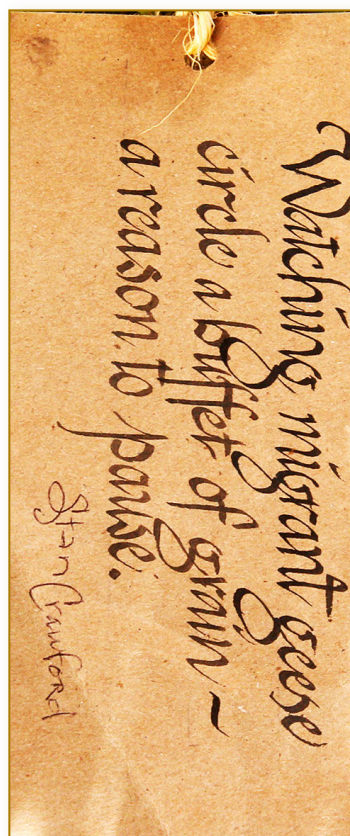 Watching migrant geese
circle a buffet of grain ~
a reason to pause.
Stan Crawford